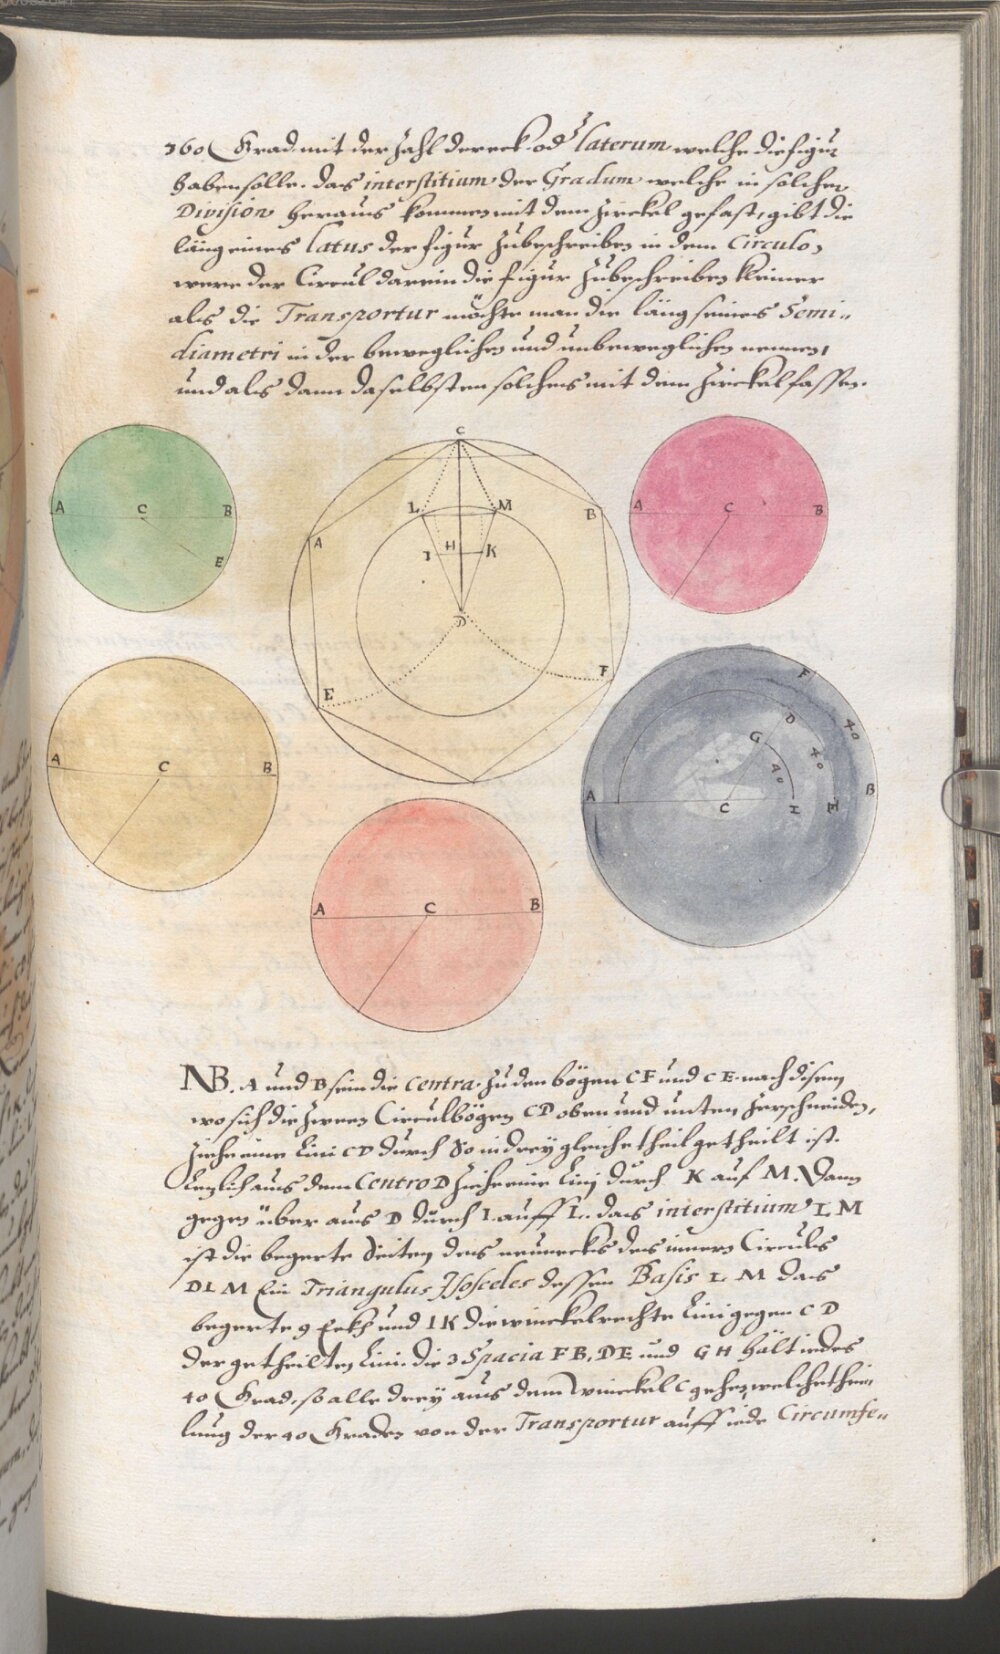 360 Grad mit der Zahl der eck. od laterum welche die figur
haben solle. das interstitium der Gradum welche in solcher
Division heraus kommen mit dem Zirckel gefast, gibt die
läng eines latus der figur zubeschreiben in dem Circulo,
were der Circul darein die figur zubeschreiben kleiner
als die Transportur möchte man die läng seines Semi„
diametri in der beweglichen und unbeweglichen nemen,
und als dann daselbsten solches mit dem Zirckel fassen.
A C B
E
C
L M
A B
I H K
D
E F
A C B
A C B
F
D 40
G 40
40
A C H E B
A C B
NB. A und B sein die Centra zu den bögen CF und CE nach disem
wo sich die zween Circulbögen CD oben und unten zerschneiden,
ziehe eine Lini CD durch so in drey gleiche theil getheilt ist.
Letzlich aus dem Centro D ziehe eine Linj durch K auf M. Dann
gegen über aus D durch I. auff L. das interstitium LM
ist die begerte Seiten des neunecks des innern Circuls
DLM Ein Triangulus Isosceles dessen Basis L M das
begerte 9 Eckh und IK die winckelrechte Lini gegen CD
der getheilten Lini. die 3 Spacia FB, DE und GH hält iedes
40 Grad, so alle drey aus dem Winckel C gehen, welche thei„
lung der 40 Graden von der Transportur auff iede Circumfe„